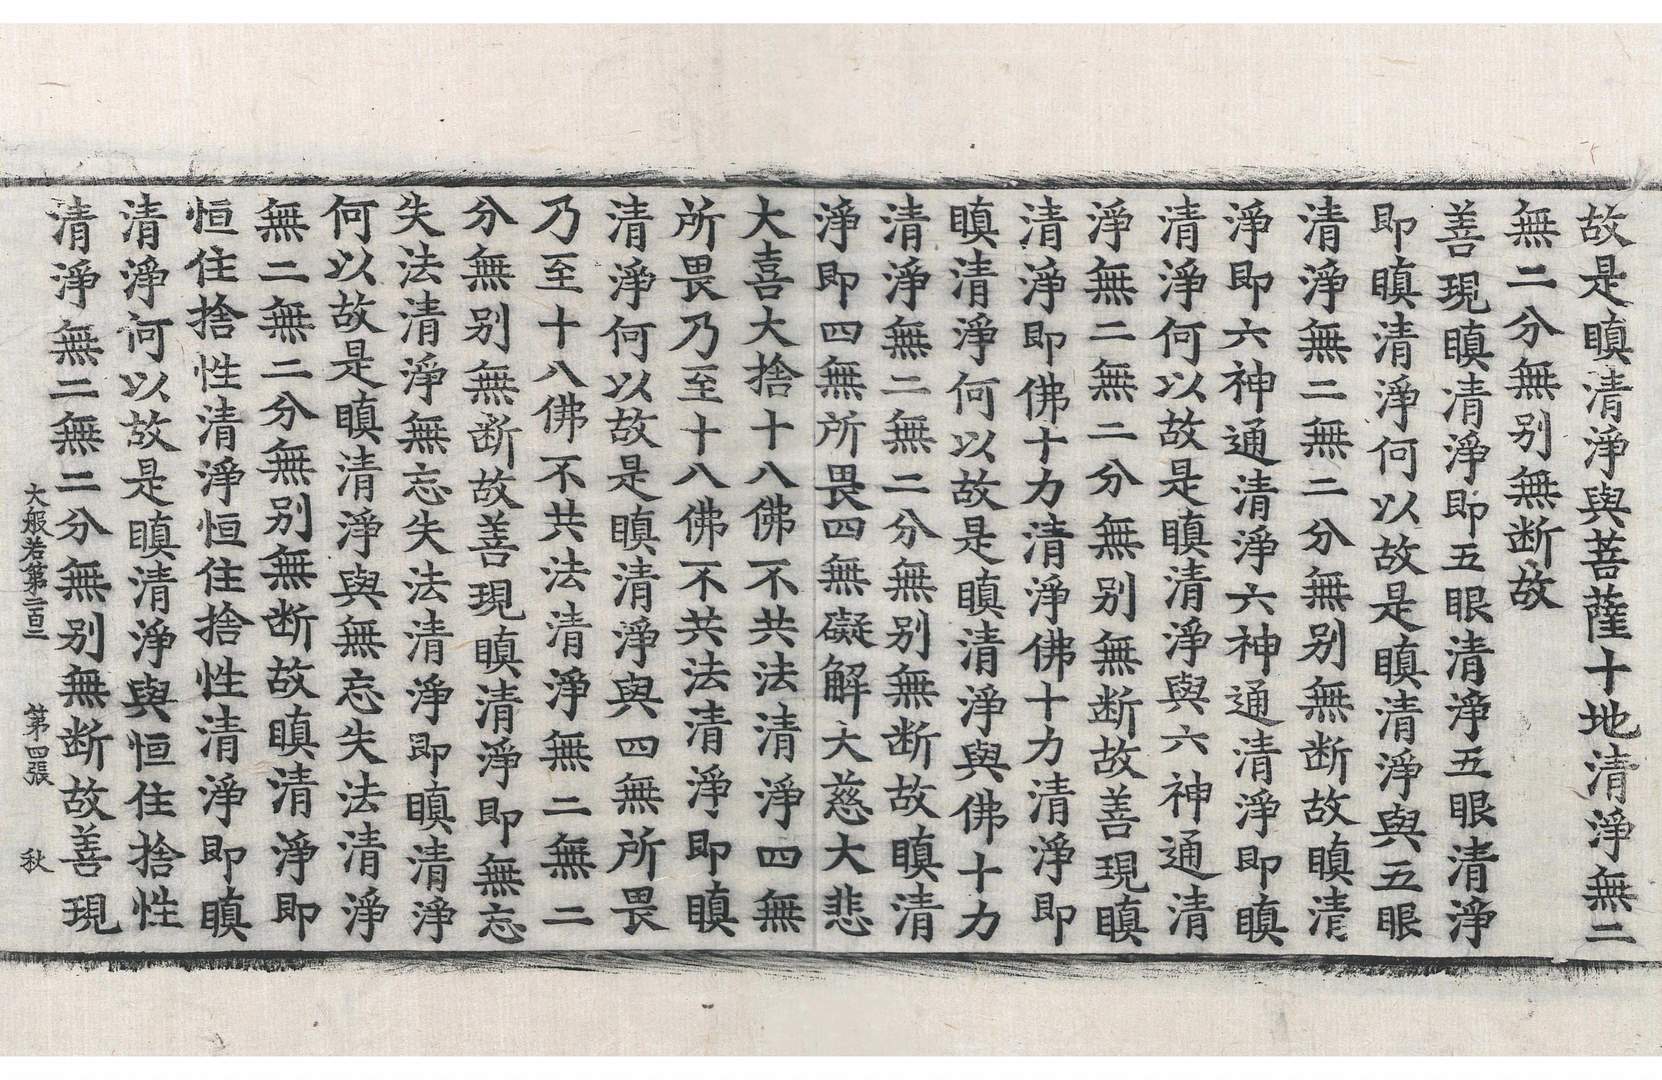 故是瞋清淨與菩薩十地清淨無二
無二分無别無断故
善現瞋清淨即五眼清淨五眼清淨
即瞋清淨何以故是瞋清淨與五眼
清淨無二無二分無别無断故瞋清
淨即六神通清淨六神通清淨即瞋
清淨何以故是瞋清淨與六神通清
淨無二無二分無别無断故善現瞋
清淨即佛十力清淨佛十力清淨即
瞋清淨何以故是瞋清淨與佛十力
清淨無二無二分無别無断故瞋清
淨即四無所畏四無礙解大慈大悲
大喜大捨十八佛不共法清淨四無
所畏乃至十八佛不共法清淨即瞋
清淨何以故是瞋清淨與四無所畏
乃至十八佛不共法清淨無二無二
分無别無断故善現瞋清淨即無忘
失法清淨無忘失法清淨即瞋清淨
何以故是瞋清淨與無忘失法清淨
無二無二分無别無断故瞋清淨即
恒住捨性清淨恒住捨性清淨即瞋
清淨何以故是瞋清淨與恒住捨性
清淨無二無二分無别無断故善現
大般若第二百二 第四張 秋